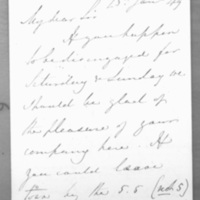 My dear Sir 25 Jan 49
If you happen
to be disengaged for
Saturday & Sunday we
should be glad of
the pleasure of your
company here. If
you could leave
town by the 5.5 (not 5)